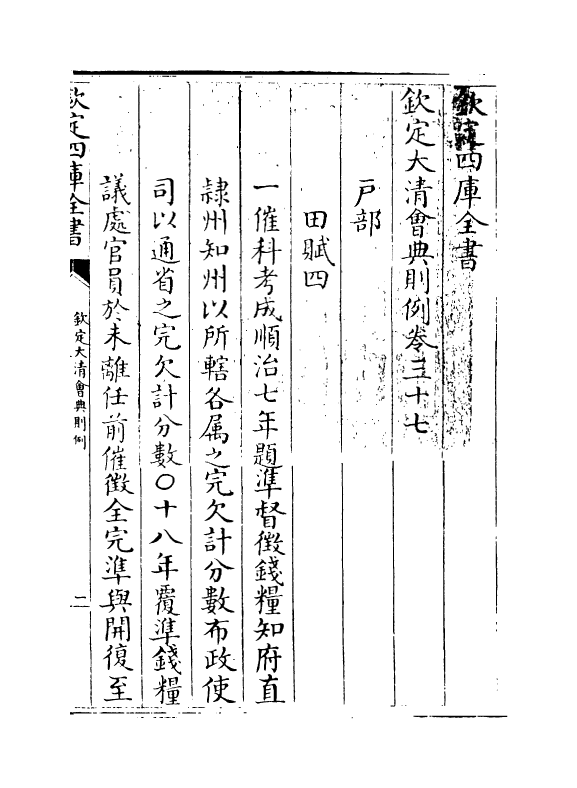 欽定四庫全書
欽定大清會典則例卷三十七
戶部
田賦四
一催科考成順治七年題準督徵錢糧知府直
隸州知州以所轄各屬之完欠計分數布政使
司以通省之完欠計分數〇十八年覆準錢糧
議處官員於未離任前催徵全完準與開復至
欽定四庫全書
欽定大清會典則例
二